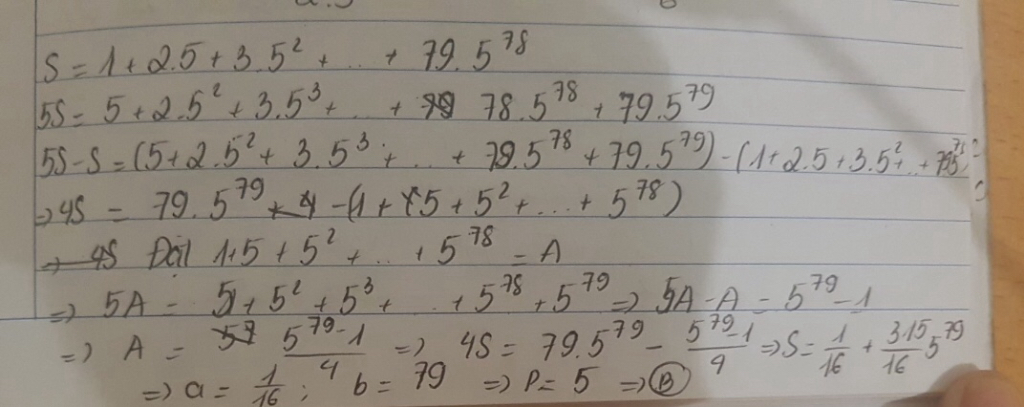 S = 1 + 2.5 + 3.5² + ... + 79.5⁷⁸
5S = 5 + 2.5² + 3.5³ + ... + 78.5⁷⁸ + 79.5⁷⁹
5S - S = (5 + 2.5² + 3.5³ + ... + 78.5⁷⁸ + 79.5⁷⁹) - (1 + 2.5 + 3.5² + ... + 79.5⁷⁸)
=> 4S = 79.5⁷⁹ - (1 + 5 + 5² + ... + 5⁷⁸)
Đặt 1 + 5 + 5² + ... + 5⁷⁸ = A
=> 5A = 5 + 5² + 5³ + ... + 5⁷⁸ + 5⁷⁹ => 5A - A = 5⁷⁹ - 1
=> A = (5⁷⁹ - 1)/4 => 4S = 79.5⁷⁹ - (5⁷⁹ - 1)/4 => S = 1/16 + 315/16 5⁷⁹
=> a = 1/16 ; b = 79 => P = 5 => B